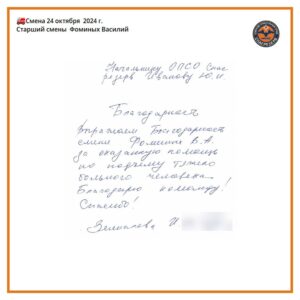 🚒Смена 24 октября 2024 г.
Старший смены Фоминых Василий
Начальнику ОПСО Спас
резерв Иванову Ю.И.
Благодарность
Выражаем Благодарность
смене Фоминых В.А.
за оказанную помощь
по подъему тяжело
больного человека.
Благодарю команду!
Спасибо!
И